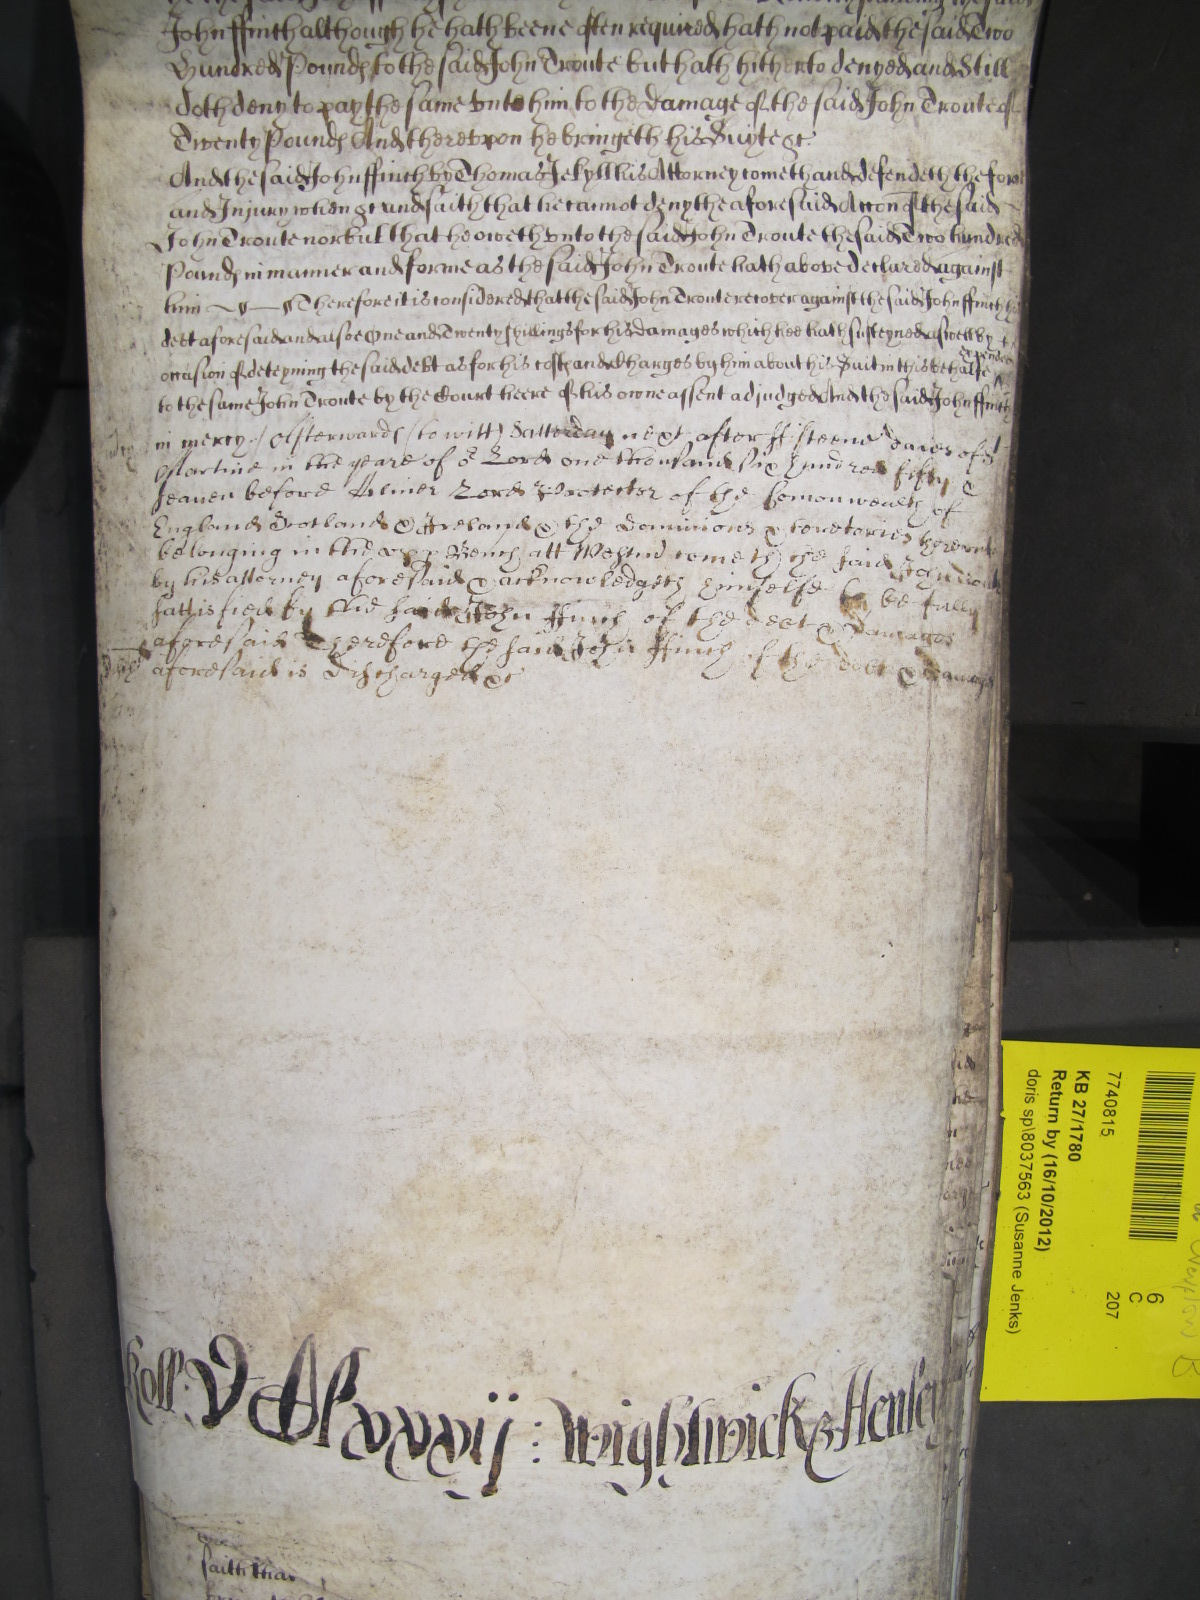 John ffinch although he hath beene often required hath not paid the said Two
Hundred Pounds to the said John Troute but hath hitherto denyed and Still
doth deny to pay the same vnto him to the damage of the said John Troute of
Twenty Pounds And therevpon he bringeth his Suyte &c
And the said John ffinch by Thomas Jekyll his Attorney cometh and defendeth the force
and Injury when &c and saith that he cannot deny the aforesaid Accon of the said
John Troute nor but that he oweth vnto the said John Troute the said Two hundred
Pounds in manner and forme as the said John Troute hath above declared against
him Therefore it is considered that the said John Troute recover against the said John ffinch his
debt aforesaid and alsoe One and Twenty shillings for his damages which hee hath susteyned aswell by
occasion of deteyning the said debt as for his costs and Charges by him about his Suit in this behalfe expended
to the same John Troute by the Court heere of his owne assent adjudged And the said John ffinch
in mercy / Afterwards (to witt) Satterday next after ffifteene daies of St
Martine in the yeare of or Lord one thousand six hundred fifty &
seaven before Oliver Lord Protector of the Comonwealth of
England Scotland & Ireland & the dominions & terretories therevnto
belonging in the vpp Bench att Westmr cometh the said John Troute
by his attorney aforesaid & acknowledgeth himselfe to be fully
sattisfied by the said John ffinch of the debt & damages
aforesaid Therefore the said John ffinch of the debt & damages
aforesaid is discharged &c
Roll
xxxij : Wightwick & Henley
saith that
7740815
KB 27/1780
Return by (16/10/2012)
doris sp\8037563 (Susanne Jenks)
6
C
207